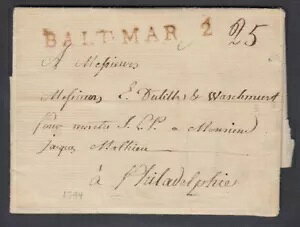 BALT MAR 2 25
A Messieurs
Messieurs E. Dutilh & Wachsmuth
pour mettre S.L.P. a Monsieur
Jacques Mathieu
à Philadelphie